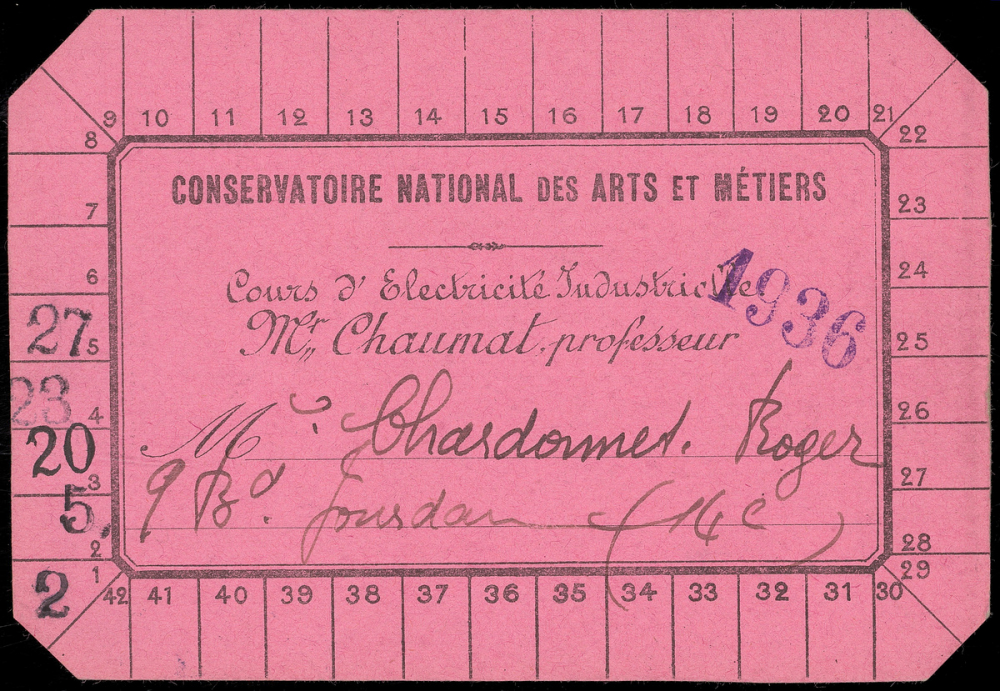 9 10 11 12 13 14 15 16 17 18 19 20 21
8 22
CONSERVATOIRE NATIONAL DES ARTS ET MÉTIERS
7 23
6 24
Cours d'Electricité Industrielle
1936
27 5 25
Mr Chaumat, professeur
23 4 26
Mr Chardonnet. Roger
20 3 27
9 Bd. Jourdan (14e)
5 2 28
2 1 29
42 41 40 39 38 37 36 35 34 33 32 31 30